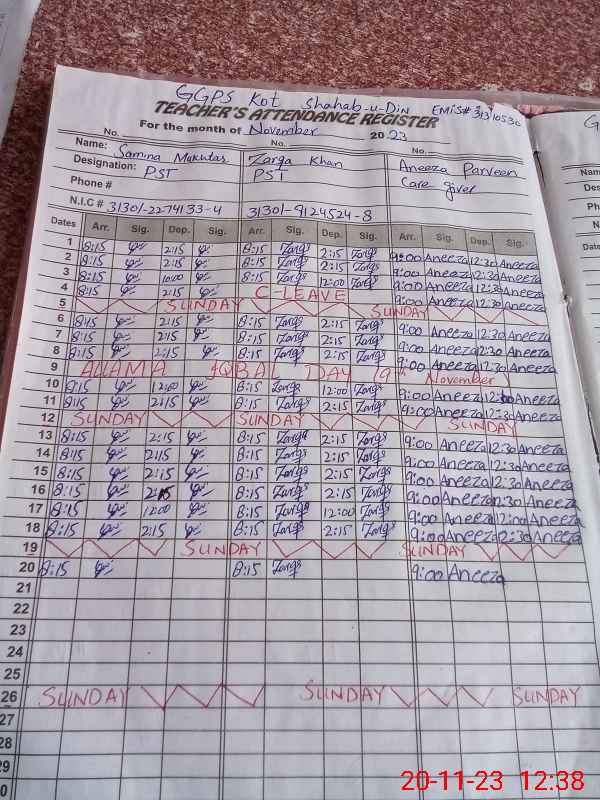 GGPS Kot Shahab-u-Din EMIS# 31310530
TEACHER'S ATTENDANCE REGISTER
For the month of November 2023
No. No. No.
Name: Samina Mukhtar Zarqa Khan Aneeza Parveen
Designation: PST PST Care giver
Phone #
N.I.C # 31301-2274133-4 31301-9124524-8
Dates Arr. Sig. Dep. Sig. Arr. Sig. Dep. Sig. Arr. Sig. Dep. Sig.
1 8:15 2:15 8:15 Zarqa 2:15 Zarqa 9:00 Aneeza 12:30 Aneeza
2 8:15 2:15 8:15 Zarqa 2:15 Zarqa 9:00 Aneeza 12:30 Aneeza
3 8:15 8:15 Zarqa 12:00 Zarqa 9:00 Aneeza 12:30 Aneeza
4 8:15 2:15 C-LEAVE 9:00 Aneeza 12:30 Aneeza
5 SUNDAY SUNDAY
6 8:15 2:15 8:15 Zarqa 2:15 Zarqa 9:00 Aneeza 12:30 Aneeza
7 8:15 2:15 8:15 Zarqa 2:15 Zarqa 9:00 Aneeza 12:30 Aneeza
8 8:15 2:15 8:15 Zarqa 2:15 Zarqa 9:00 Aneeza 12:30 Aneeza
9 ALLAMA IQBAL DAY 9th November
10 8:15 12:00 8:15 Zarqa 12:00 Zarqa 9:00 Aneeza 12:00 Aneeza
11 8:15 2:15 8:15 Zarqa 2:15 Zarqa 9:00 Aneeza 12:30 Aneeza
12 SUNDAY SUNDAY SUNDAY
13 8:15 2:15 8:15 Zarqa 2:15 Zarqa 9:00 Aneeza 12:30 Aneeza
14 8:15 2:15 8:15 Zarqa 2:15 Zarqa 9:00 Aneeza 12:30 Aneeza
15 8:15 2:15 8:15 Zarqa 2:15 Zarqa 9:00 Aneeza 12:30 Aneeza
16 8:15 2:15 8:15 Zarqa 2:15 Zarqa 9:00 Aneeza 12:30 Aneeza
17 8:15 12:00 8:15 Zarqa 12:00 Zarqa 9:00 Aneeza 12:00 Aneeza
18 8:15 2:15 8:15 Zarqa 2:15 Zarqa 9:00 Aneeza 12:30 Aneeza
19 SUNDAY SUNDAY
20 8:15 8:15 Zarqa 9:00 Aneeza
21
22
23
24
25
26 SUNDAY SUNDAY SUNDAY
27
28
29
20-11-23 12:38